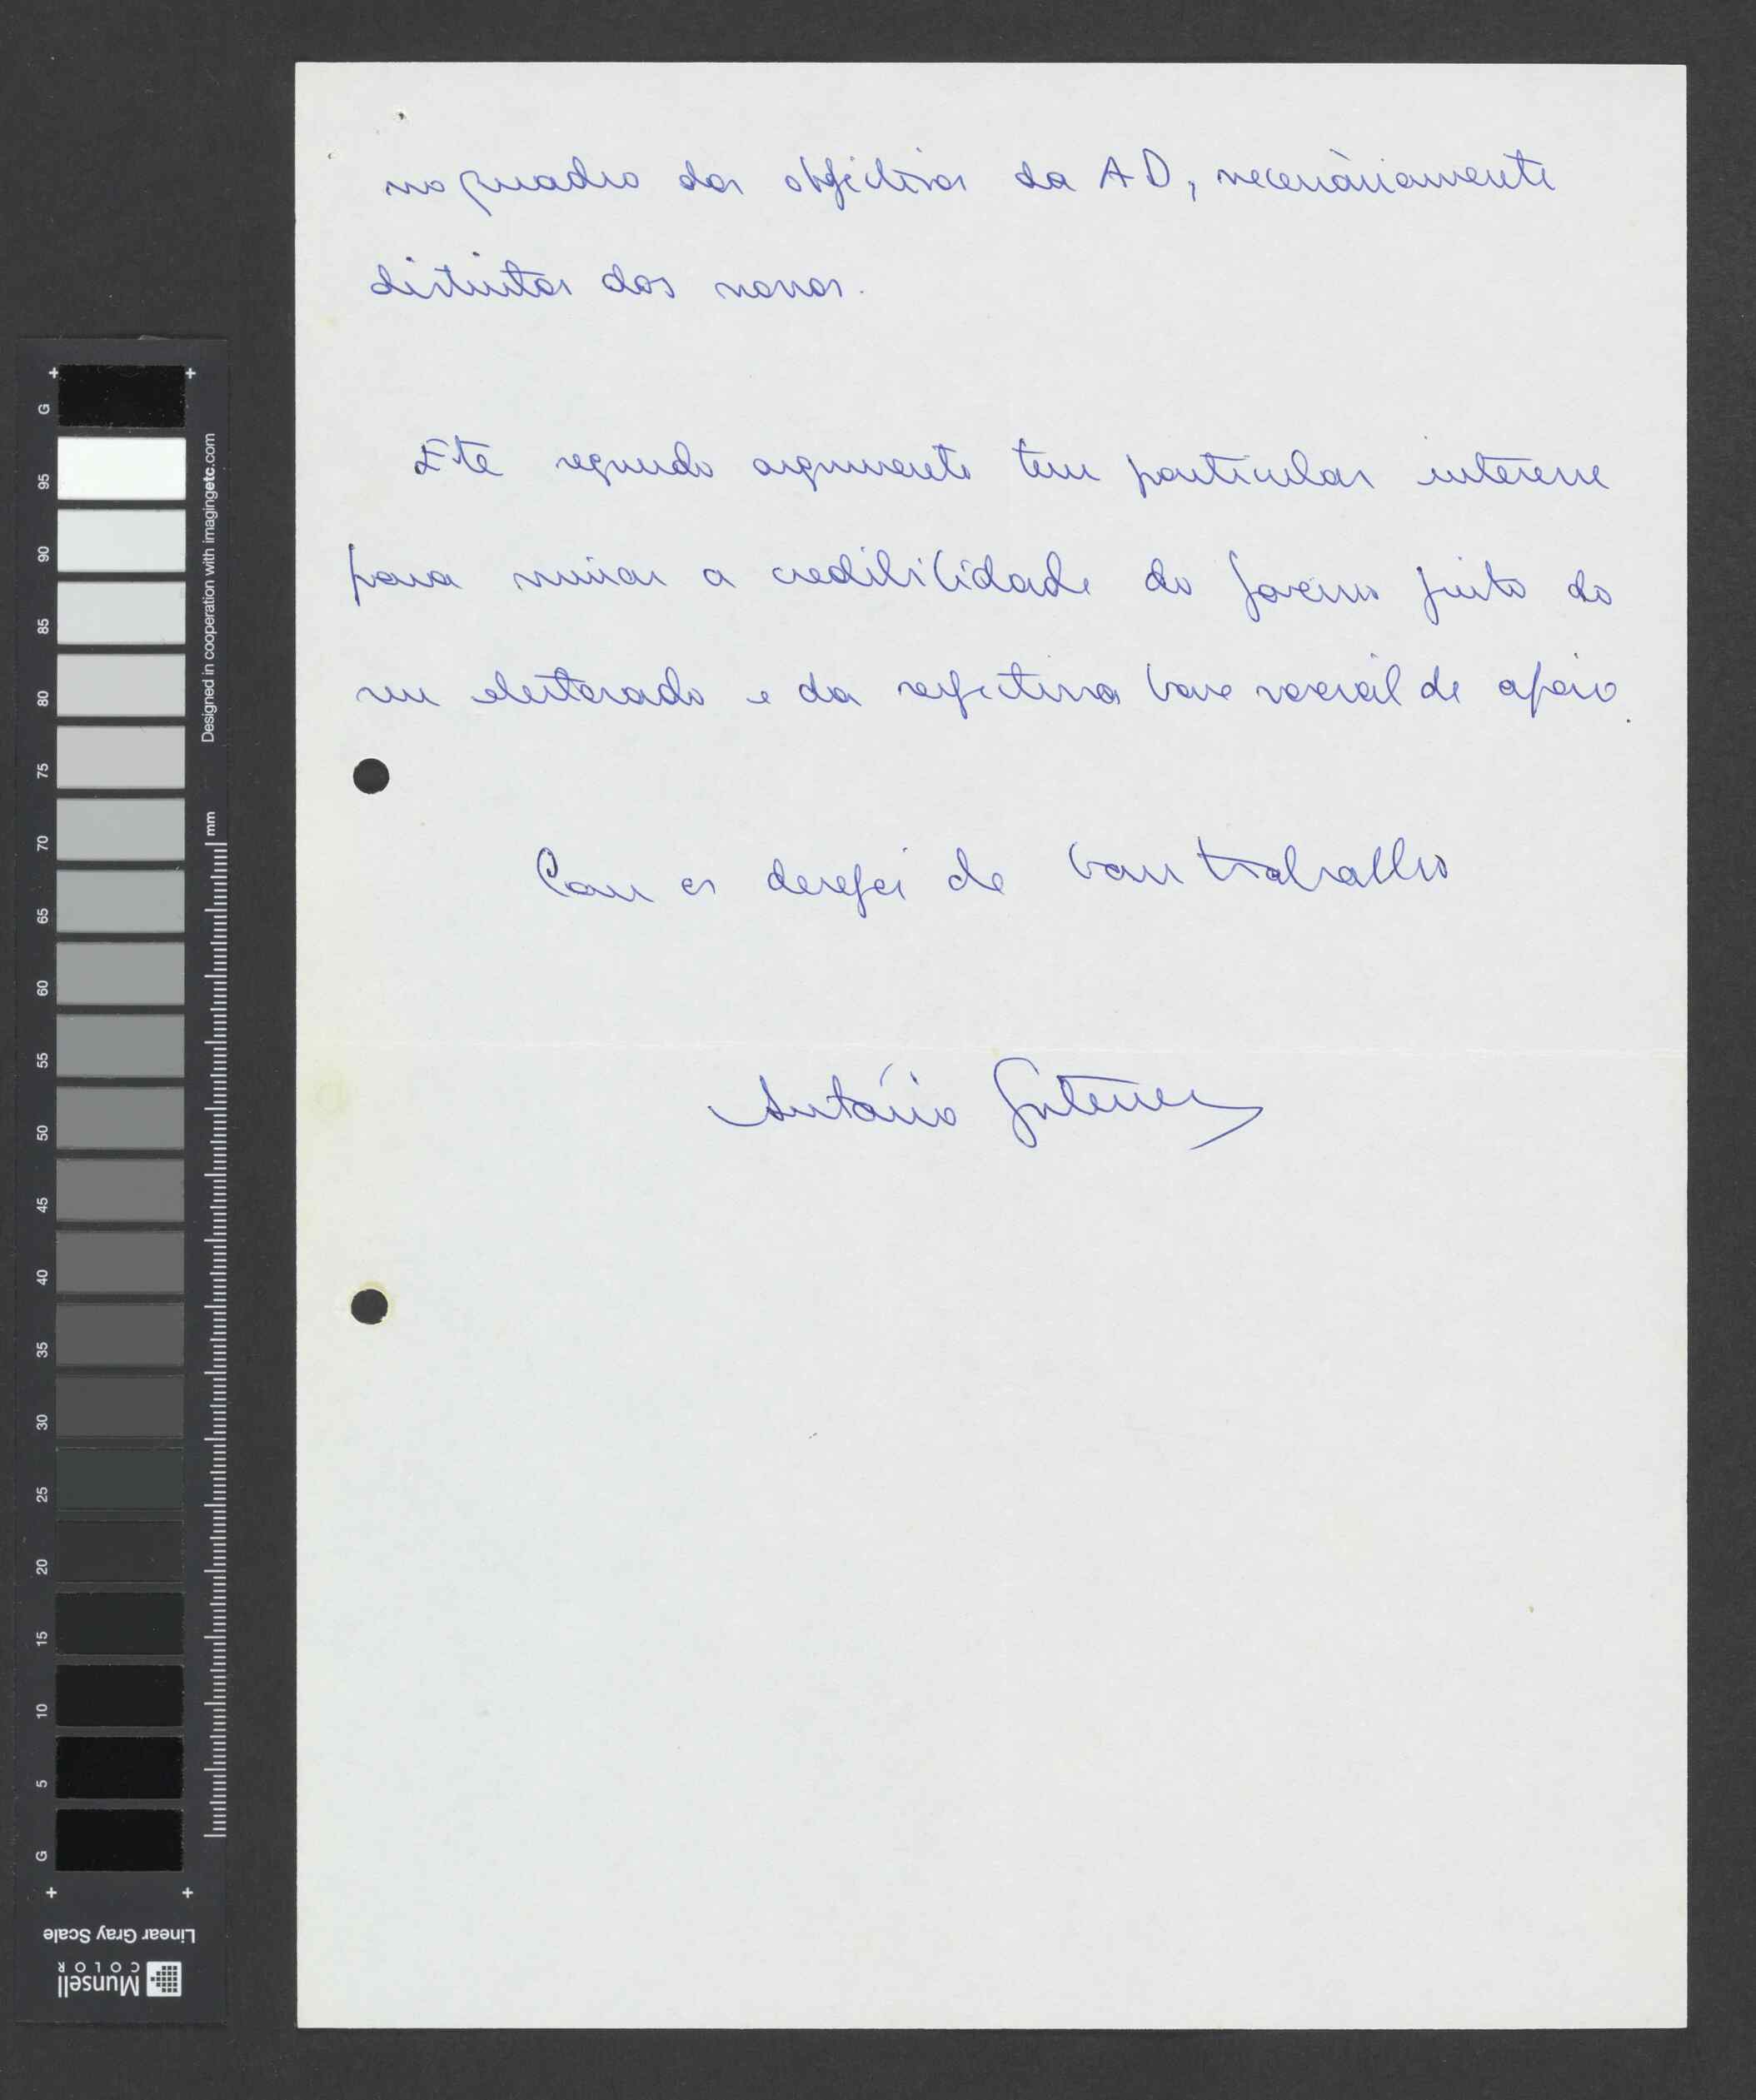 no quadro dos objectivos da AD, necessàriamente
distintos dos nossos.
Este segundo argumento tem particular interesse
para minar a credibilidade do Governo junto do
seu eleitorado e da respectiva base social de apoio.
Com os desejos de bom trabalho
António Guterres
G
95
90
85
80
75
70
65
60
55
50
45
40
35
30
25
20
15
10
5
G
Designed in cooperation with imagingetc.com
mm
Linear Gray Scale
Munsell
COLOR